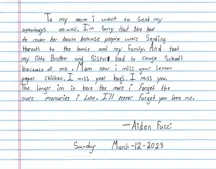 To my mom i want to send my
apologies as well. I'm sorry that she had
to move her house because people were sending
threats to the house and my family. And that
my little Brother and Sisters had to change schools
because of me. Mom now i miss your lemon
peper chicken. I miss your hugs. I miss you.
The longer im in here the more i forget the
more memories i lose. I'll never forget you love me.
—Aiden Fucci
Sunday March-12-2023